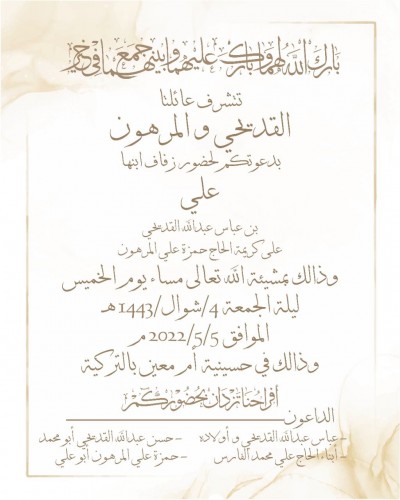 بارك الله لهما وبارك عليهما وجمع بينهما في خير
تتشرف عائلتا
القديحي و المرهون
بدعوتكم لحضور زفاف ابنها
علي
بن عباس عبدالله القديحي
على كريمة الحاج حمزة علي المرهون
وذالك بمشيئة الله تعالى مساء يوم الخميس
ليلة الجمعة 4/شوال/1443 هـ
الموافق 2022/5/5 م
وذالك في حسينية أم معين بالتركية
أفراحنا تزدان بحضوركم
الداعون
-عباس عبدالله القديحي و أولاده -حسن عبدالله القديحي أبو محمد
-أبناء الحاج علي محمد الفارس -حمزة علي المرهون أبو علي